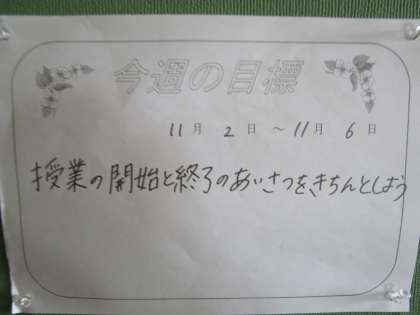 今週の目標
11月 2日 ～11月 6日
授業の開始と終了のあいさつをきちんとしよう